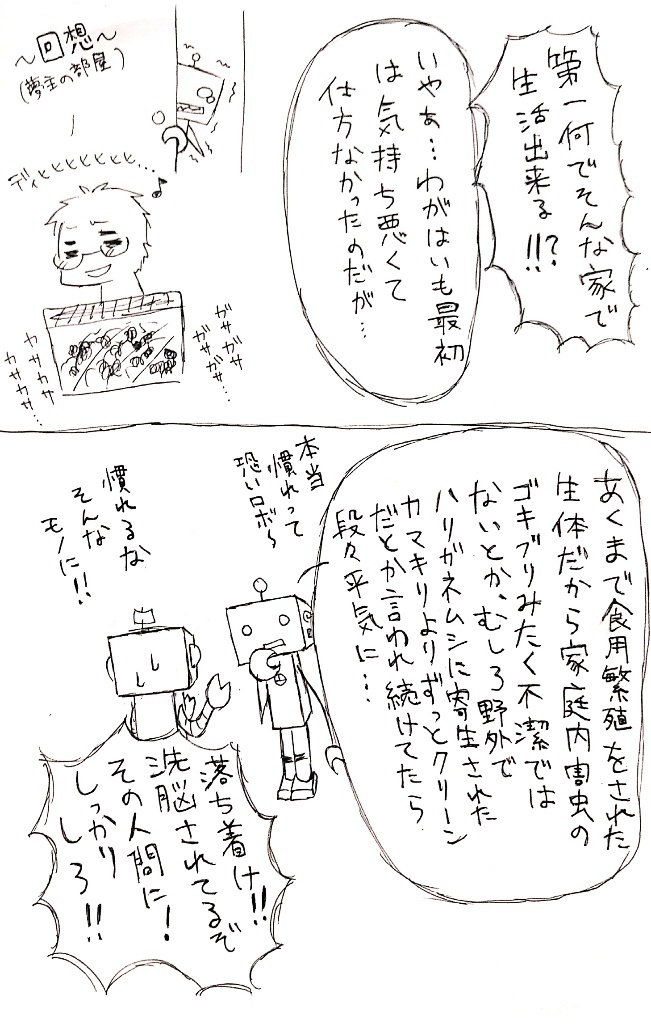 第一何でそんな家で
生活出来る!!?
いやぁ…わがはいも最初
は気持ち悪くて
仕方なかったのだが…
~回想~
(夢主の部屋)
ディヒヒヒヒヒヒヒ…♪
ガサガサ
ガサガサ…
カサカサ
カサカサ…
あくまで食用繁殖をされた
生体だから家庭内害虫の
ゴキブリみたく不潔では
ないとか、むしろ野外で
ハリガネムシに寄生された
カマキリよりずっとクリーン
だとか言われ続けてたら
段々平気に…
本当
慣れって
恐いロボ~
慣れるな
そんな
モノに!!
落ち着け!!
洗脳されてるぞ
その人間に!
しっかり
しろ!!